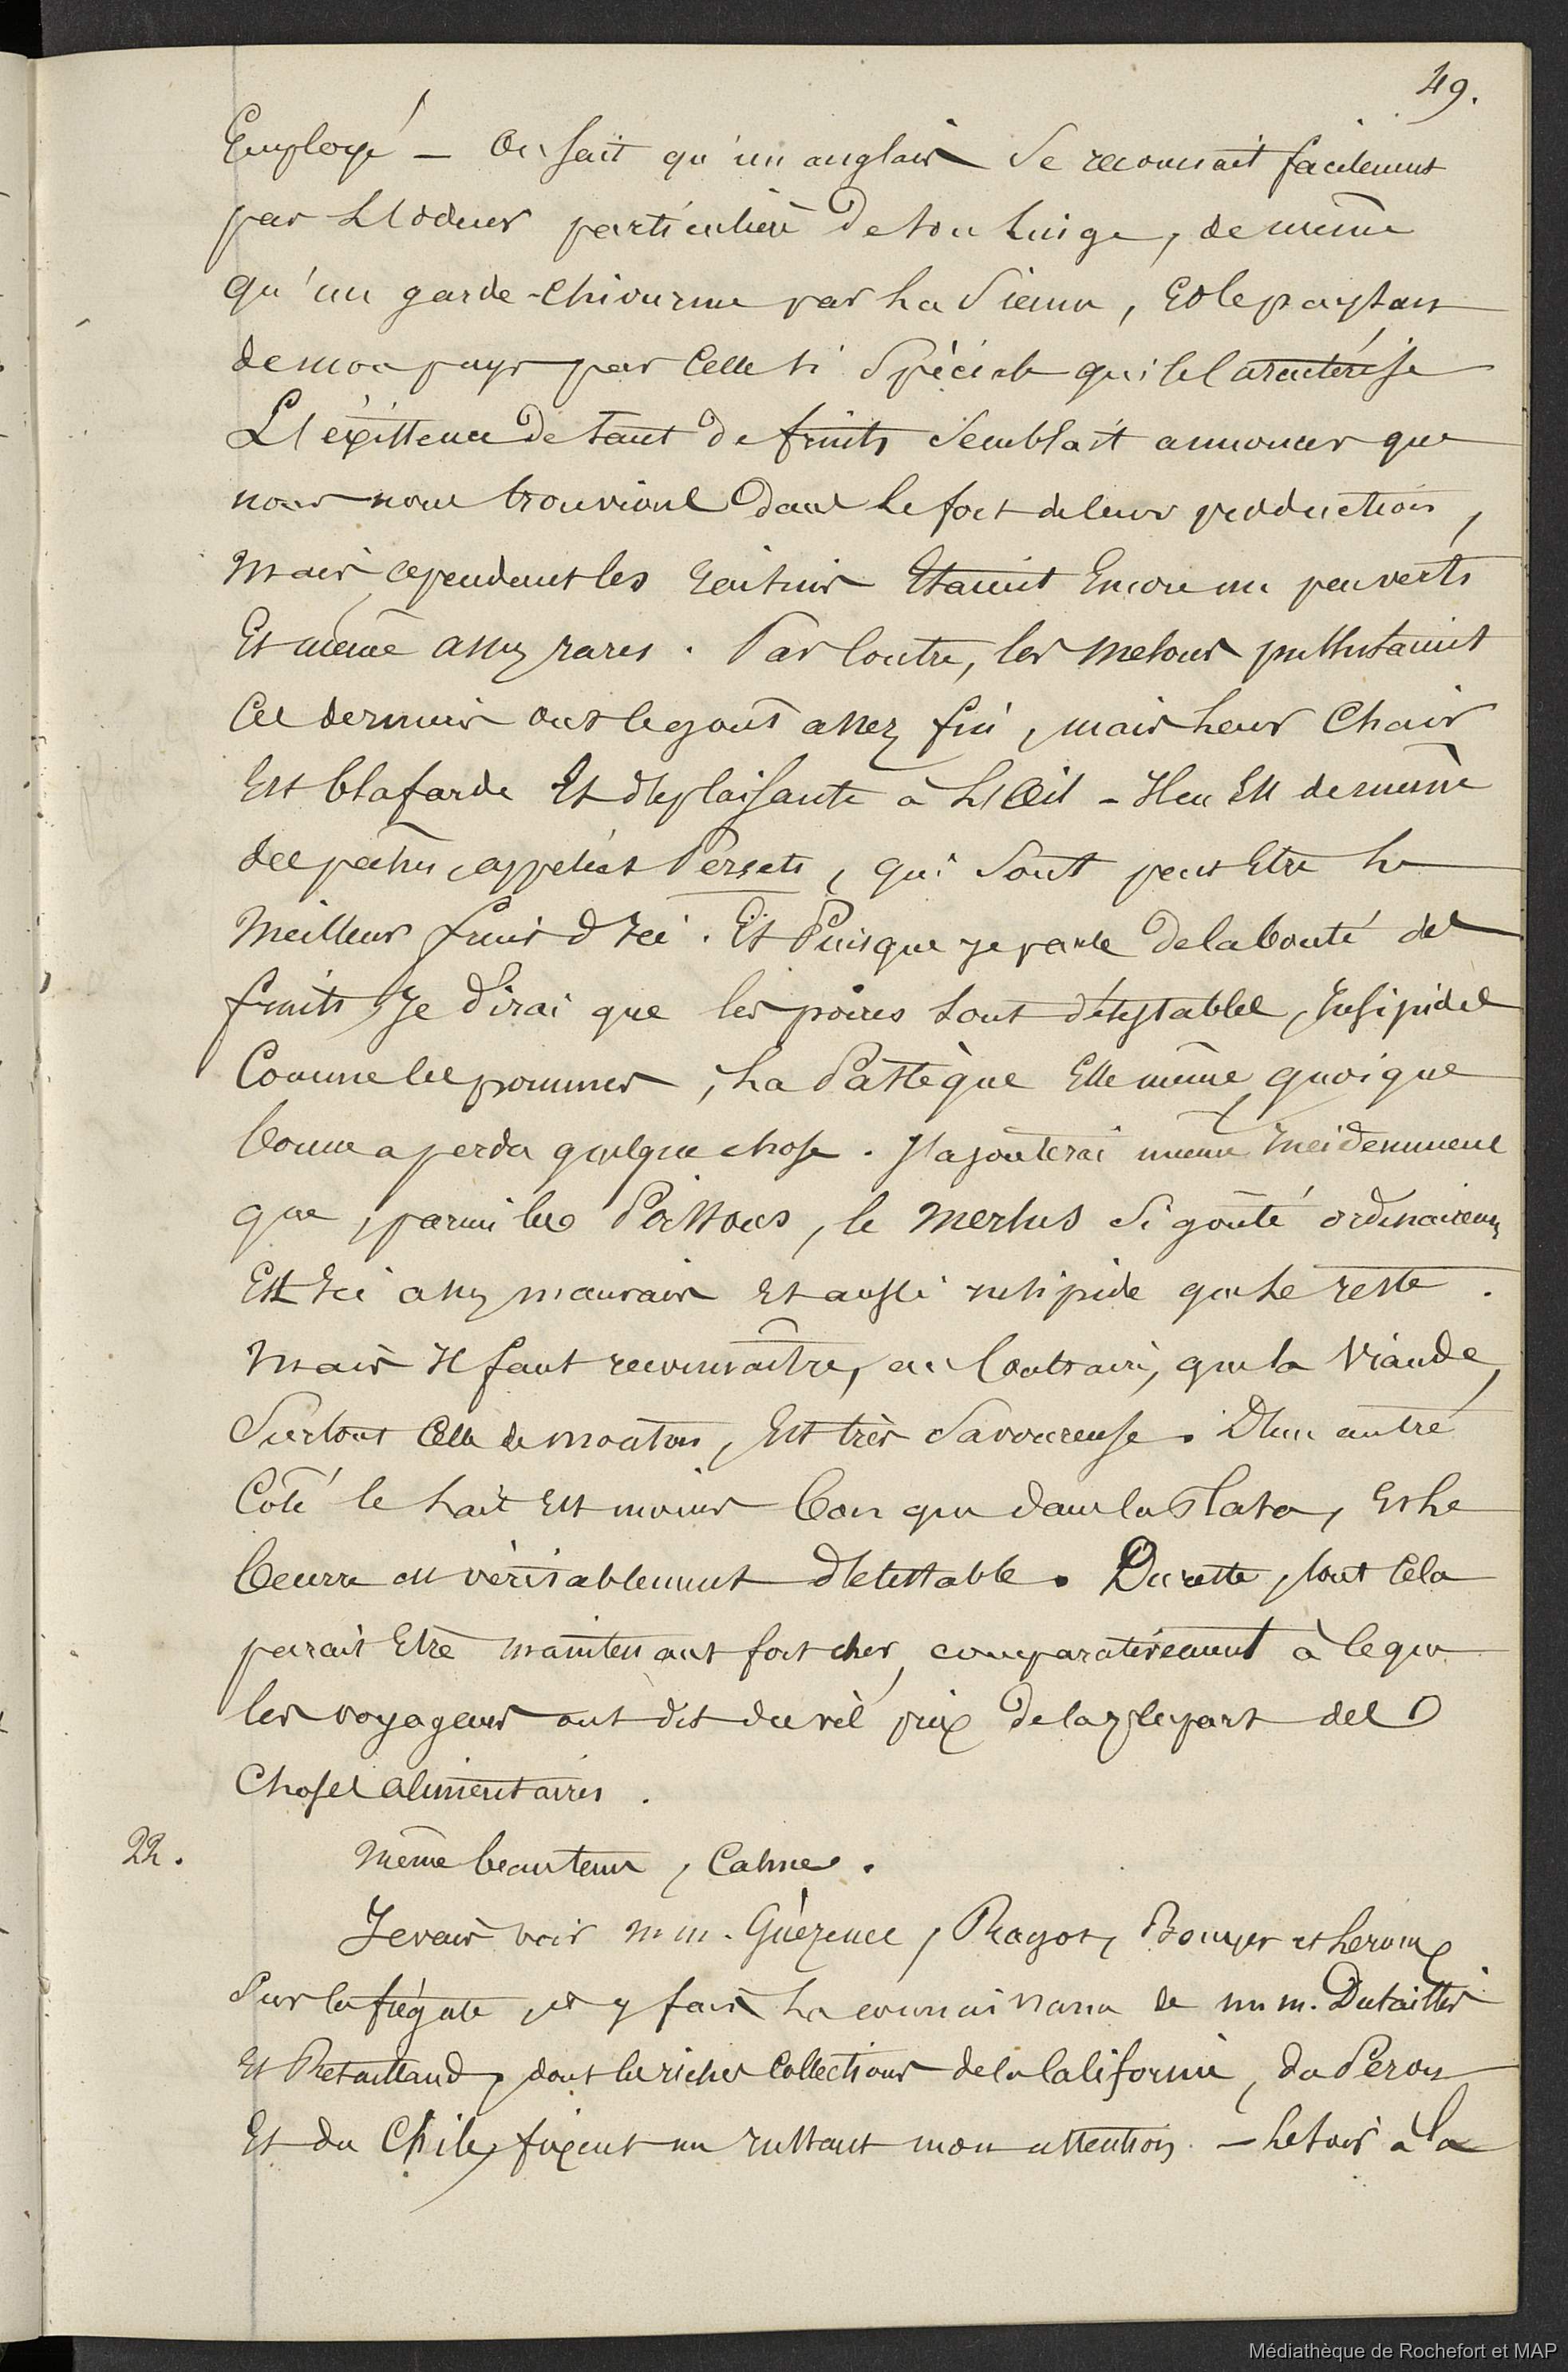 49.
Employé — On sait qu'un anglais se reconnait facilement
par L'odeur particulière de son Linge, de même
qu'un garde-chiourme par La Sienne, Et le paysan
de mon pays par Celle si Spéciale qui le Caractérise
L'éxistence de tant de fruits Semblait annoncer que
nous nous trouvions dans Le fort de leur production,
Mais cependant les raisins Etaient Encore un peu verts
Et même assez rares. Par Contre, les Melons pullulaient
Ces derniers ont le goût assez fin, mais Leur Chair
Est blafarde Et déplaisante à L'Œil — Il en Est de même
des pêches, appelées Persets, qui Sont peut Etre Le
Meilleur fruit d'Ici. Et Puisque je parle de la bonté des
fruits, Je dirai que les poires Sont détestables, Insipides
Comme les pommes, La Pastèque Elle même, quoique
bonne a perdu quelque chose. J'ajouterai même Incidemment
que, parmi les Poissons, le Merlus Si goûté ordinairemt
Est Ici assez mauvais Et aussi insipide que Le reste.
Mais Il faut reconnaître, au Contraire, que la Viande,
Surtout Celle de mouton, Est très Savoureuse. D'un autre
Côté le Lait Est moins bon que dans la Plata, Et Le
beurre est véritablement détestable. Du reste, tout Cela
parait Etre maintenant fort cher, comparativement à Ce que
les voyageurs ont dit du vil prix de la plupart des
Choses alimentaires.
22. Même beau tems, Calme.
Je vais voir m.m. Guézenec, Ragot, Bouyer et Leroux
Sur la frégate, et y fais La connaissance de m.m. Dutaillis
Et Retailland, dont les riches Collections de la Californie, du Pérou
Et du Chile, fixent un instant mon attention. — Le Soir à La
Médiathèque de Rochefort et MAP